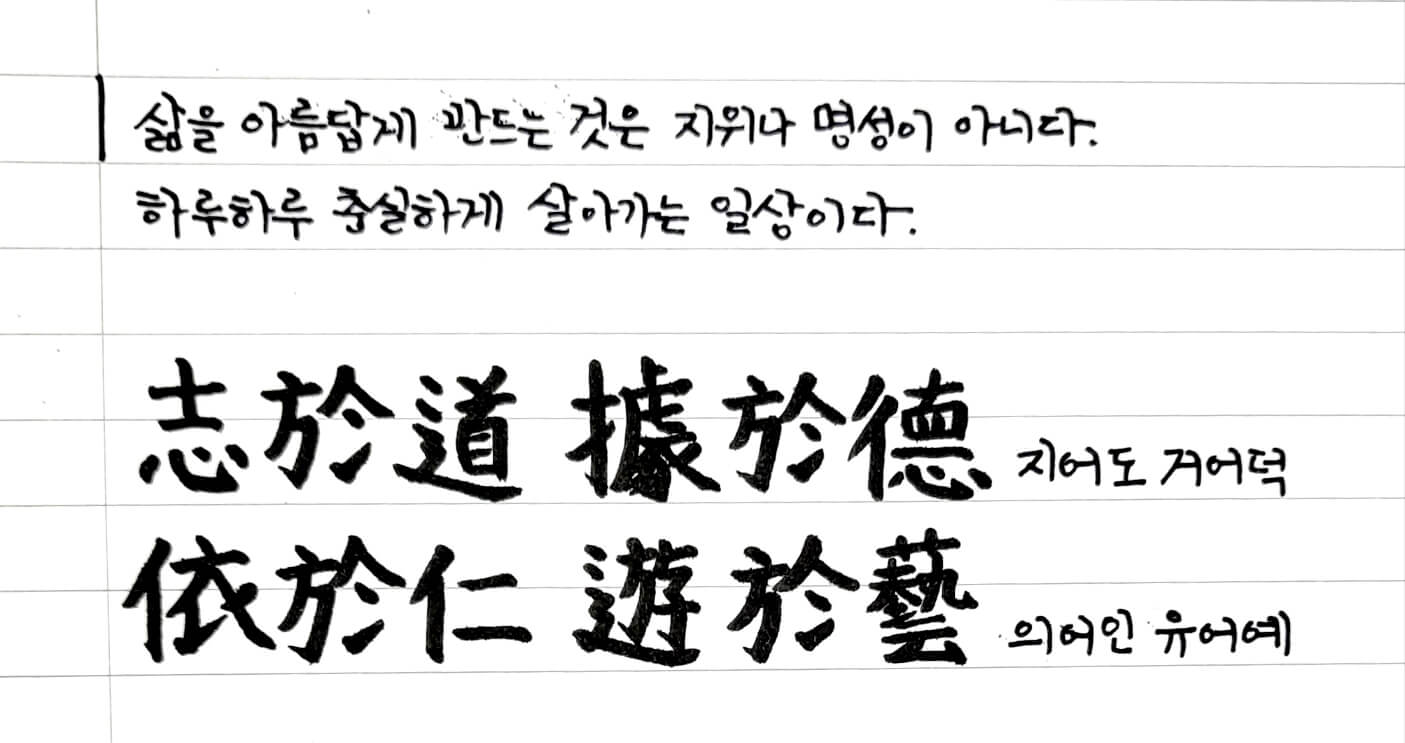 삶을 아름답게 만드는 것은 지위나 명성이 아니다.
하루하루 충실하게 살아가는 일상이다.
志於道 據於德 지어도 거어덕
依於仁 遊於藝 의어인 유어예